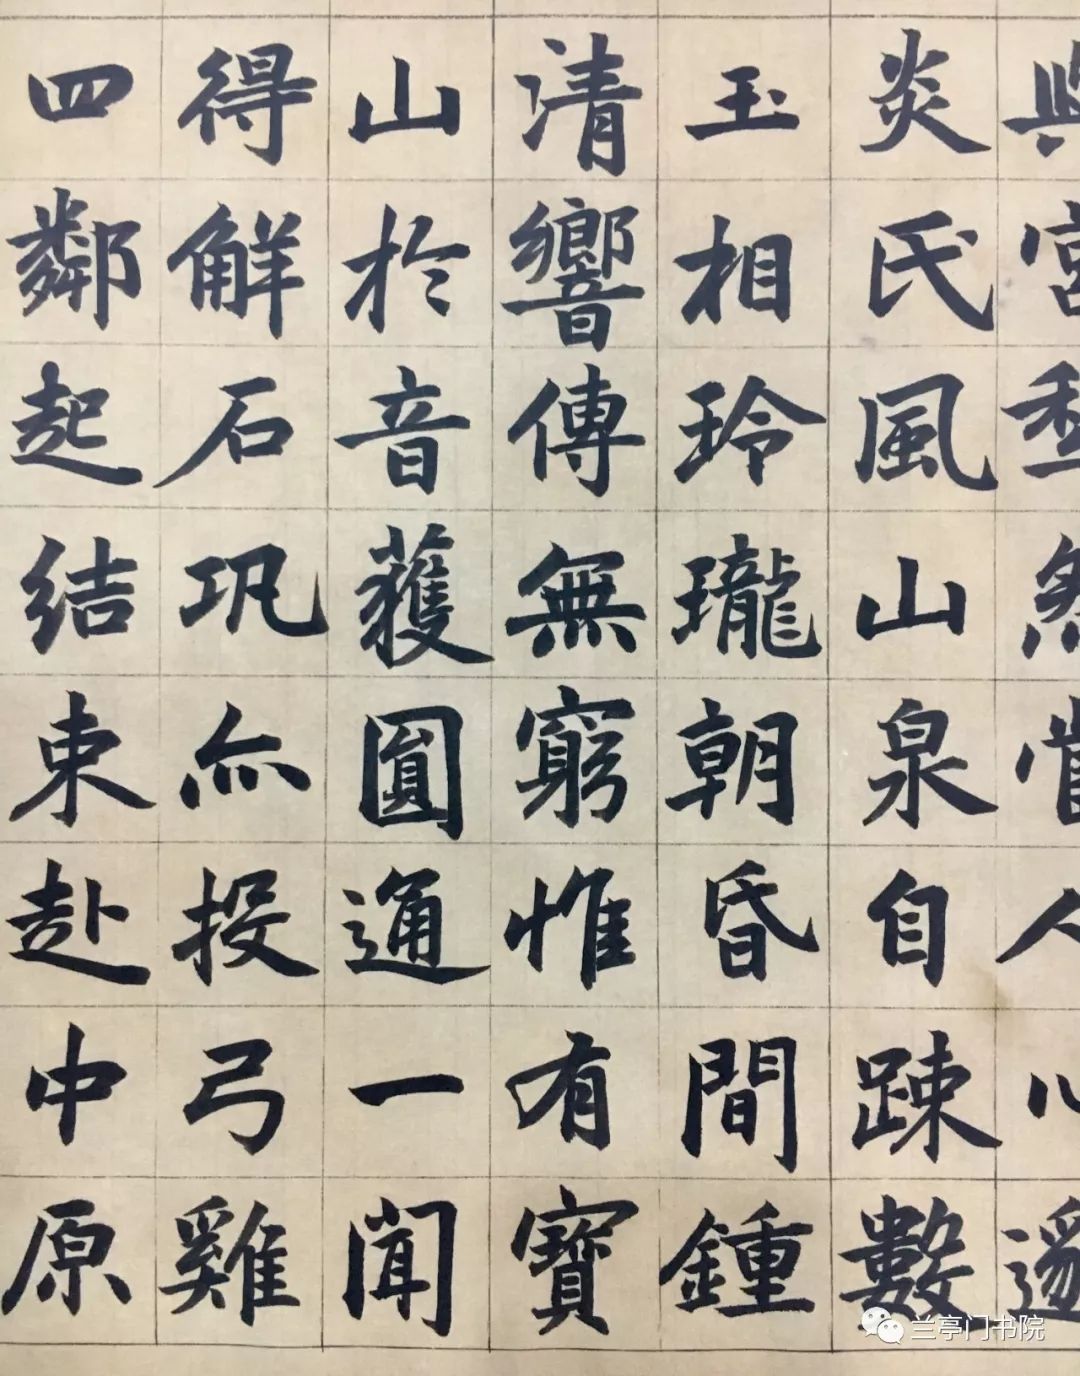 與宮然人心
炎氏風山泉自踈數
玉相玲瓏朝昏間鍾
清響傳無窮惟有寶
山於音獲圓通一聞
得觧石巩亦投弓雞
四鄰起結束赴中原
兰亭门书院